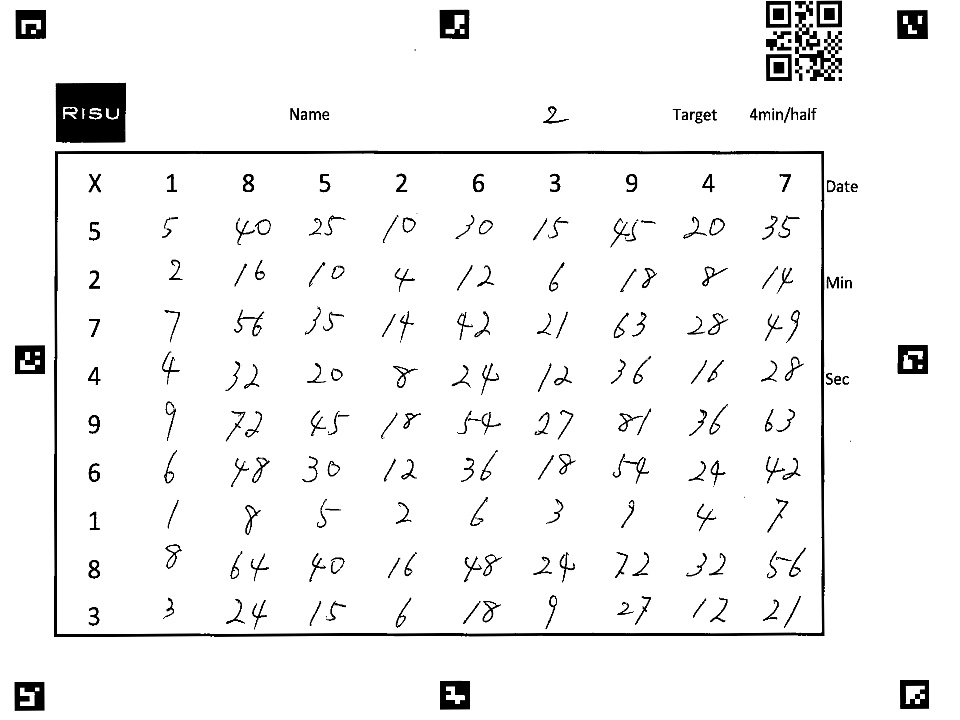 RISU Name 2 Target 4min/half
X 1 8 5 2 6 3 9 4 7 Date
5 5 40 25 10 30 15 45 20 35
2 2 16 10 4 12 6 18 8 14 Min
7 7 56 35 14 42 21 63 28 49
4 4 32 20 8 24 12 36 16 28 Sec
9 9 72 45 18 54 27 81 36 63
6 6 48 30 12 36 18 54 24 42
1 1 8 5 2 6 3 9 4 7
8 8 64 40 16 48 24 72 32 56
3 3 24 15 6 18 9 27 12 21